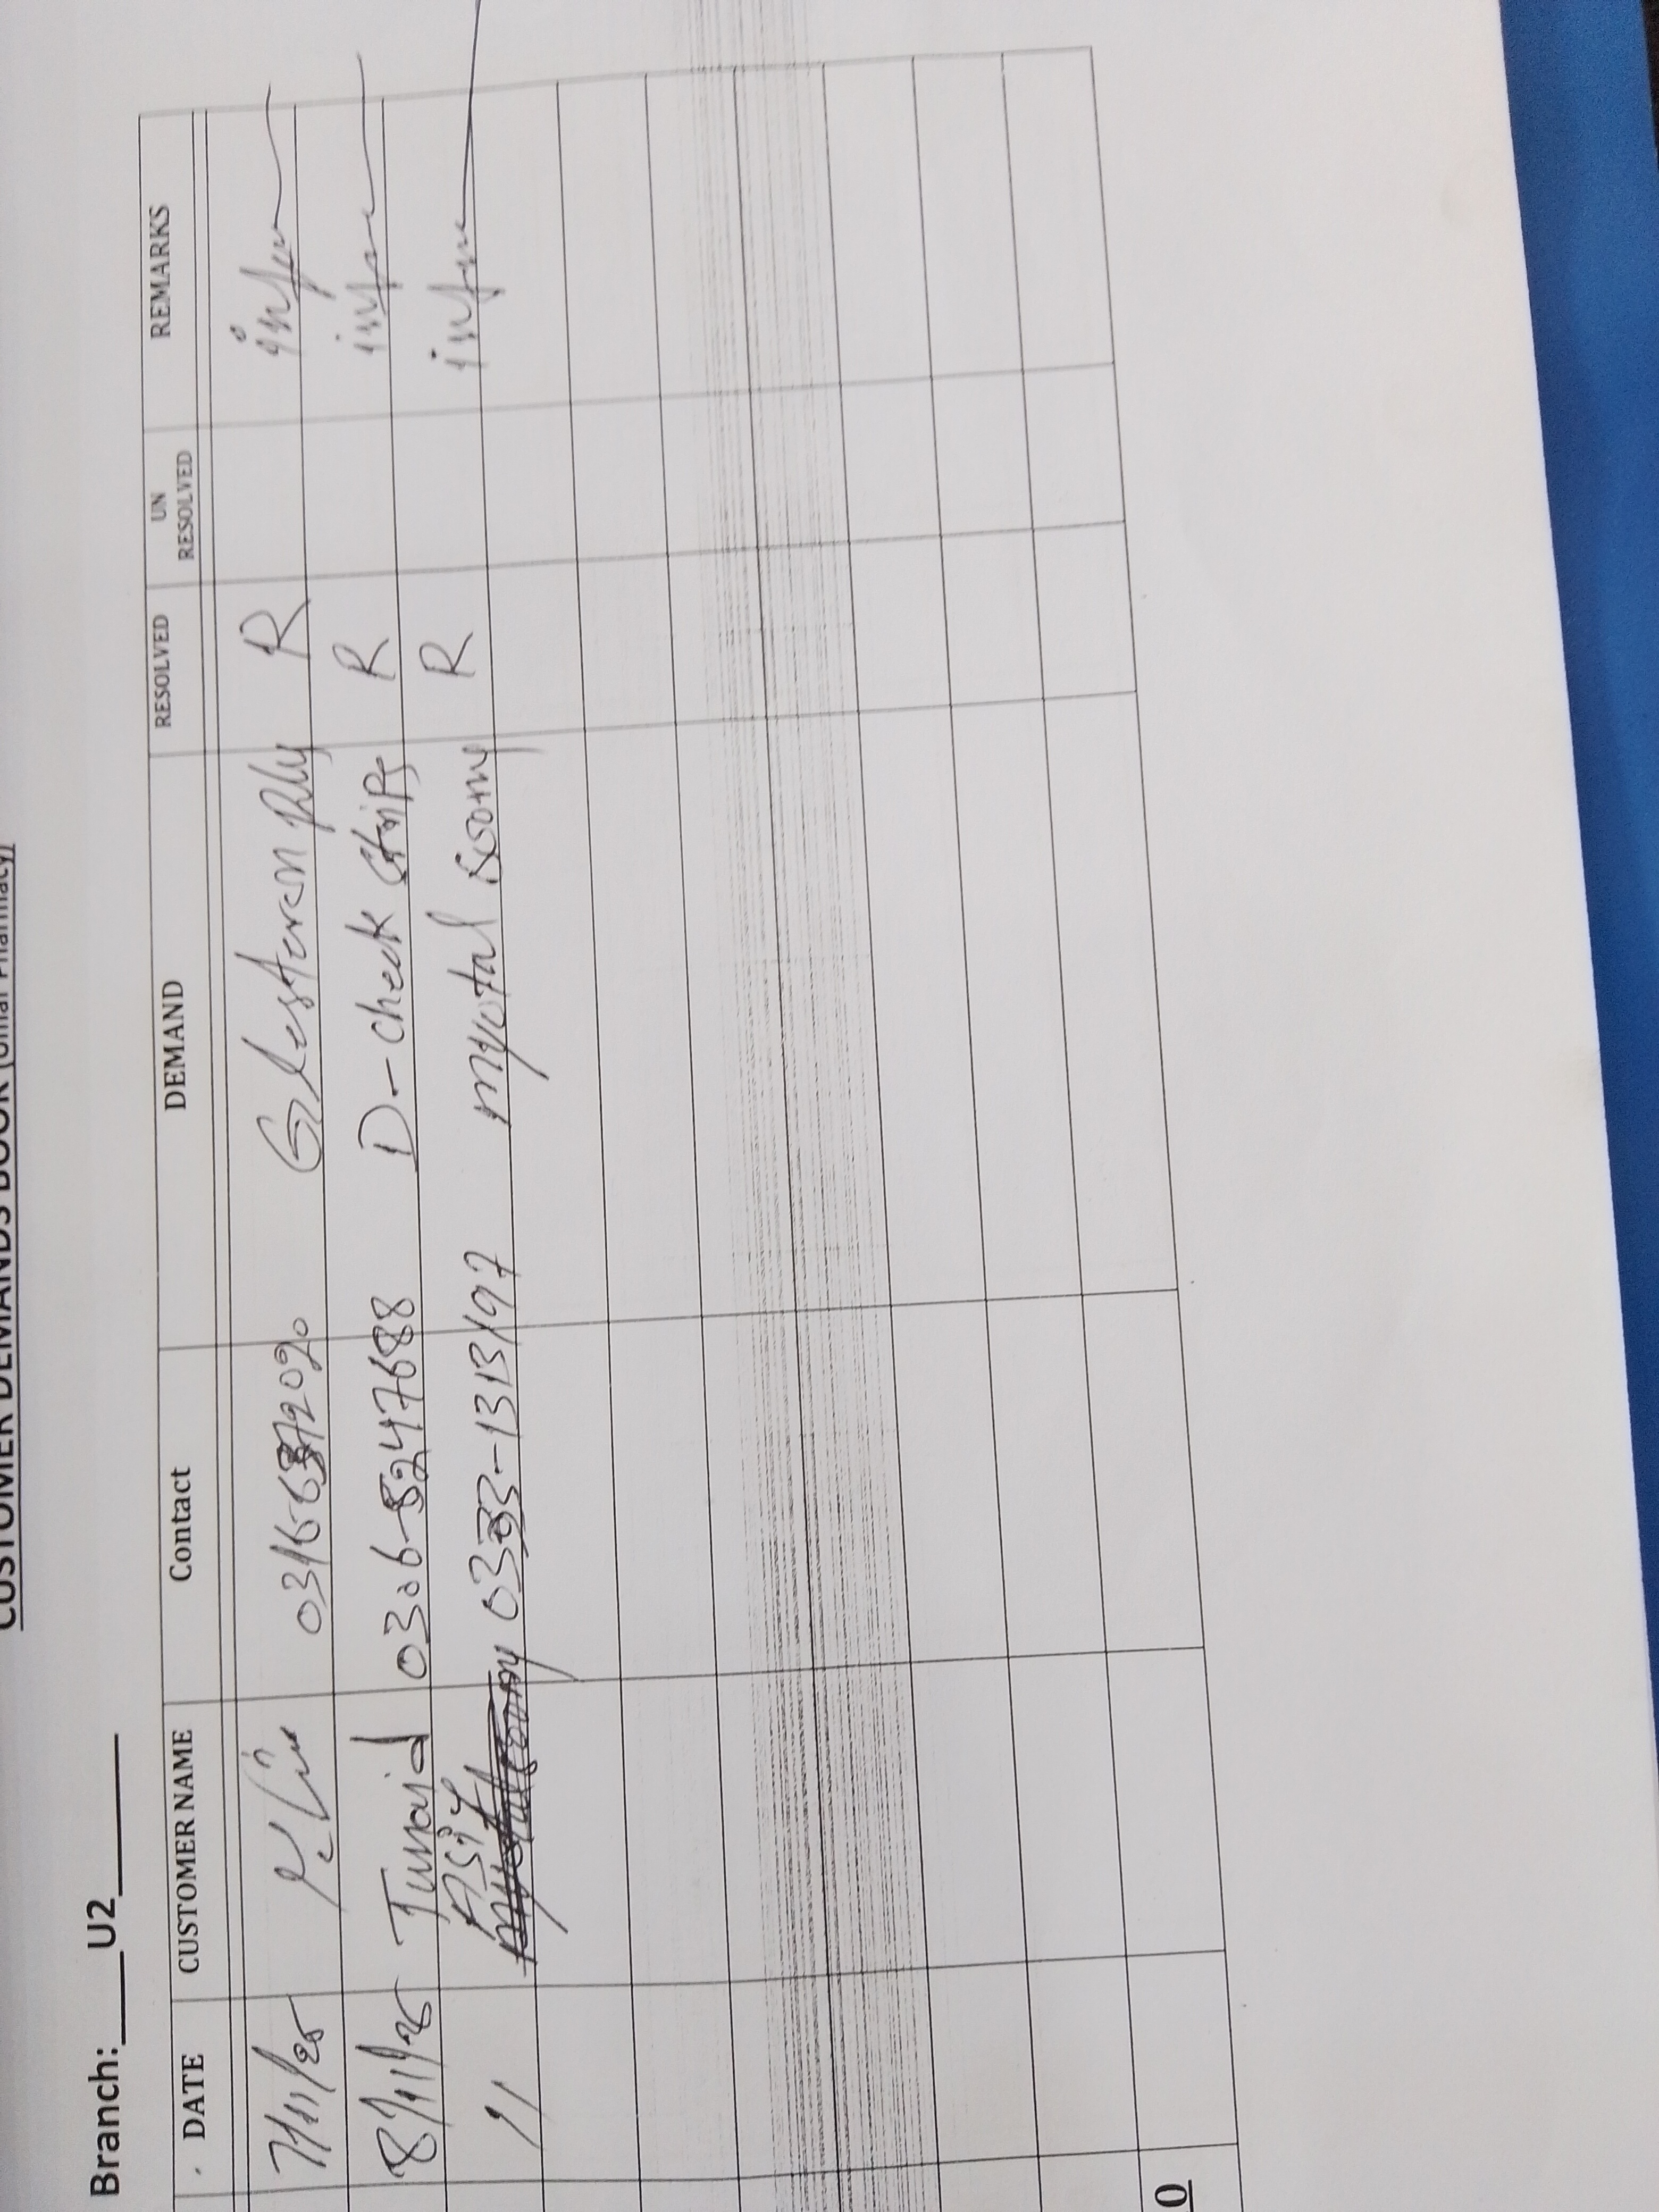 CUSTOMER DEMANDS BOOK (Umar Pharmacy)
Branch:____U2______
DATE CUSTOMER NAME Contact DEMAND RESOLVED UN RESOLVED REMARKS
7/11/25 R
8/11/25 Junaid 0306-8247688 D-check strips R infrm
11 Asif 0333-1313197 myotal 500mg R infrm
0